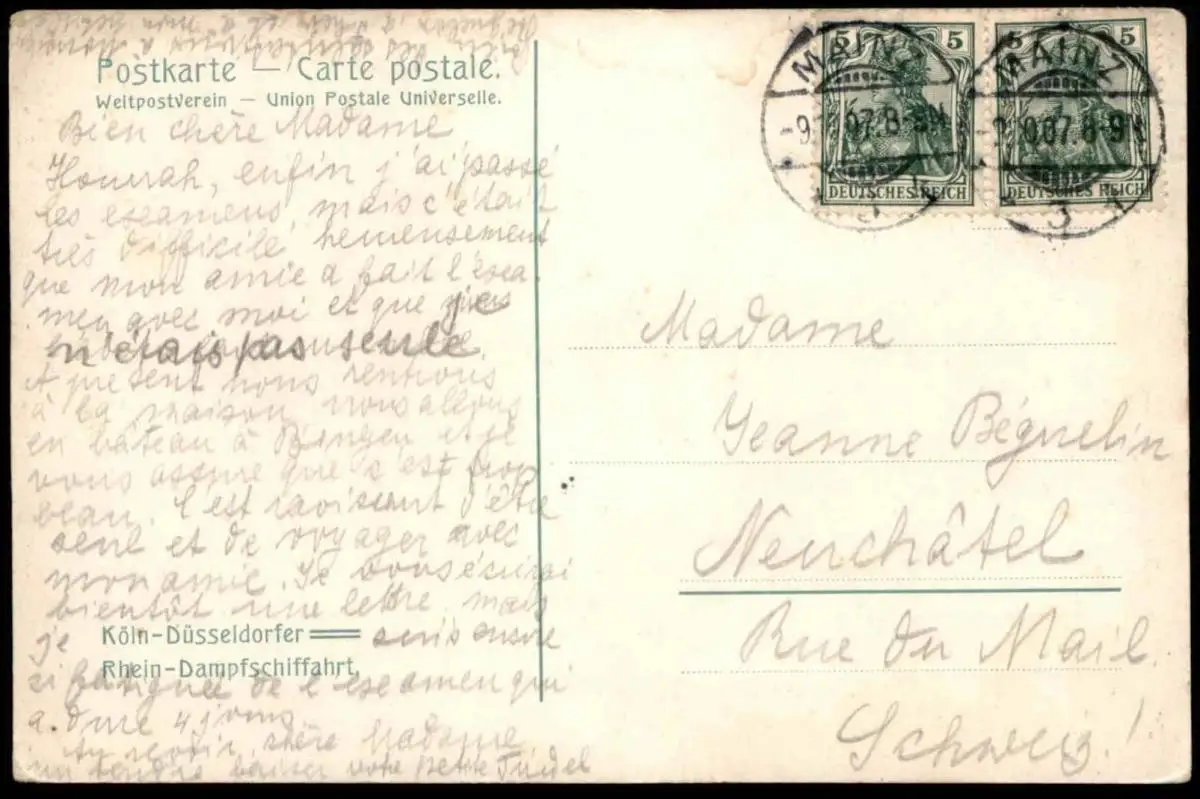 Postkarte — Carte postale.
Weltpostverein — Union Postale Universelle.
Bien chère Madame
Hourrah, enfin j'ai passé
les eseamens, mais c'était
très difficile, heureusement
que mon amie a fait l'esea-
men avec moi et que je
n'étais pas seule.
A présent nous rentrons
à la maison, nous allons
en bateau à Bingen et je
vous assure que c'est trop
beau. C'est ravissant d'être
seul et de voyager avec
mon amie. Je vous écrirai
bientôt une lettre, mais
je suis encore
Köln-Düsseldorfer
Rhein-Dampfschiffahrt,
si fatiguée de l'eseamen qui
a duré 4 jours
Au revoir, chère Madame
un tendre baiser votre petite Trudel
5 5
DEUTSCHES REICH
5 5
DEUTSCHES REICH
MAINZ
MAINZ
07.8-9
07.8-9
3
Madame
Jeanne Béguelin
Neuchâtel
Rue du Mail.
Schweiz!